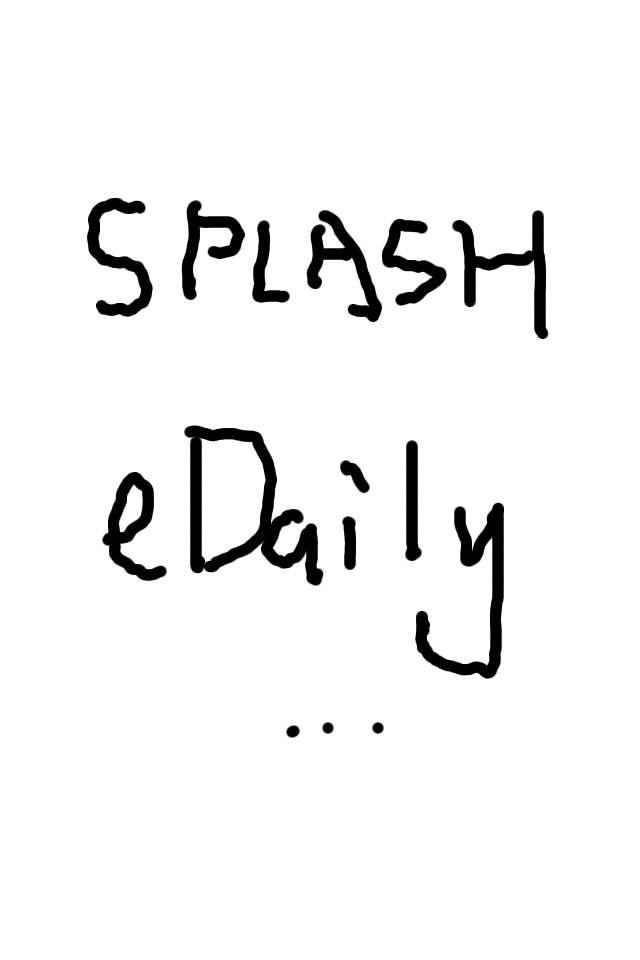 SPLASH
eDaily
...